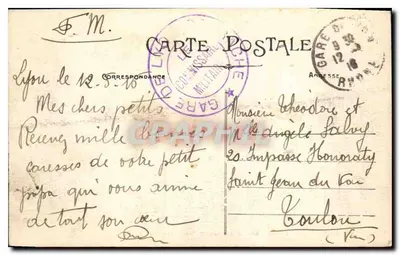 F. M.
CARTE POSTALE
CORRESPONDANCE
ADRESSE
GARE DE
LE COMMISSAIRE
MILITAIRE
GARE D
12 - 7
16
RHONE
Lyon le 12-7-16
Mes chers petits
Recevez mille
caresses de votre petit
papa qui vous aime
de tout son cœur
Monsieur Théodore et
Angèle Salvy
20 Impasse Honoraty
Saint Jean du Var
Toulon
(Var)